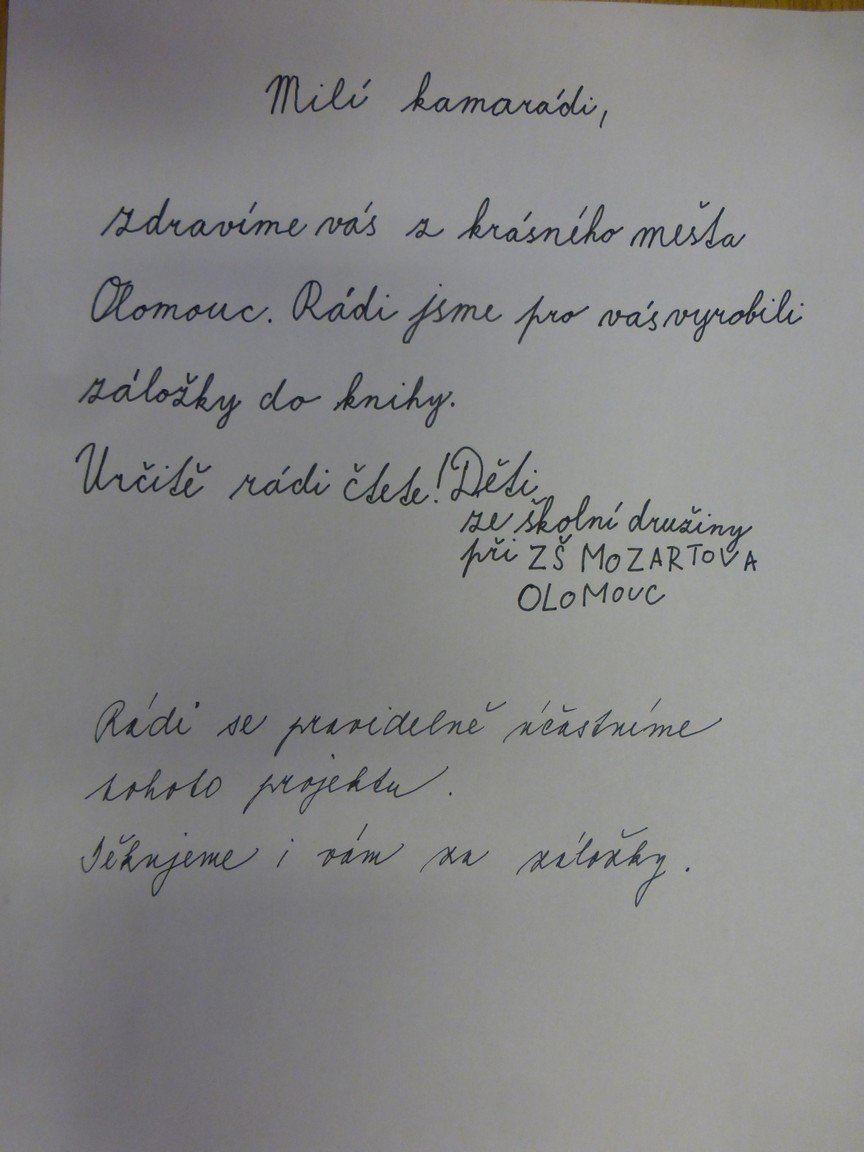 Milí kamarádi,
zdravíme vás z krásného města
Olomouc. Rádi jsme pro vás vyrobili
záložky do knihy.
Určitě rádi čtete! Děti
ze školní družiny
při ZŠ MOZARTOVA
OLOMOUC
Rádi se pravidelně účastníme
tohoto projektu.
Děkujeme i vám za záložky.